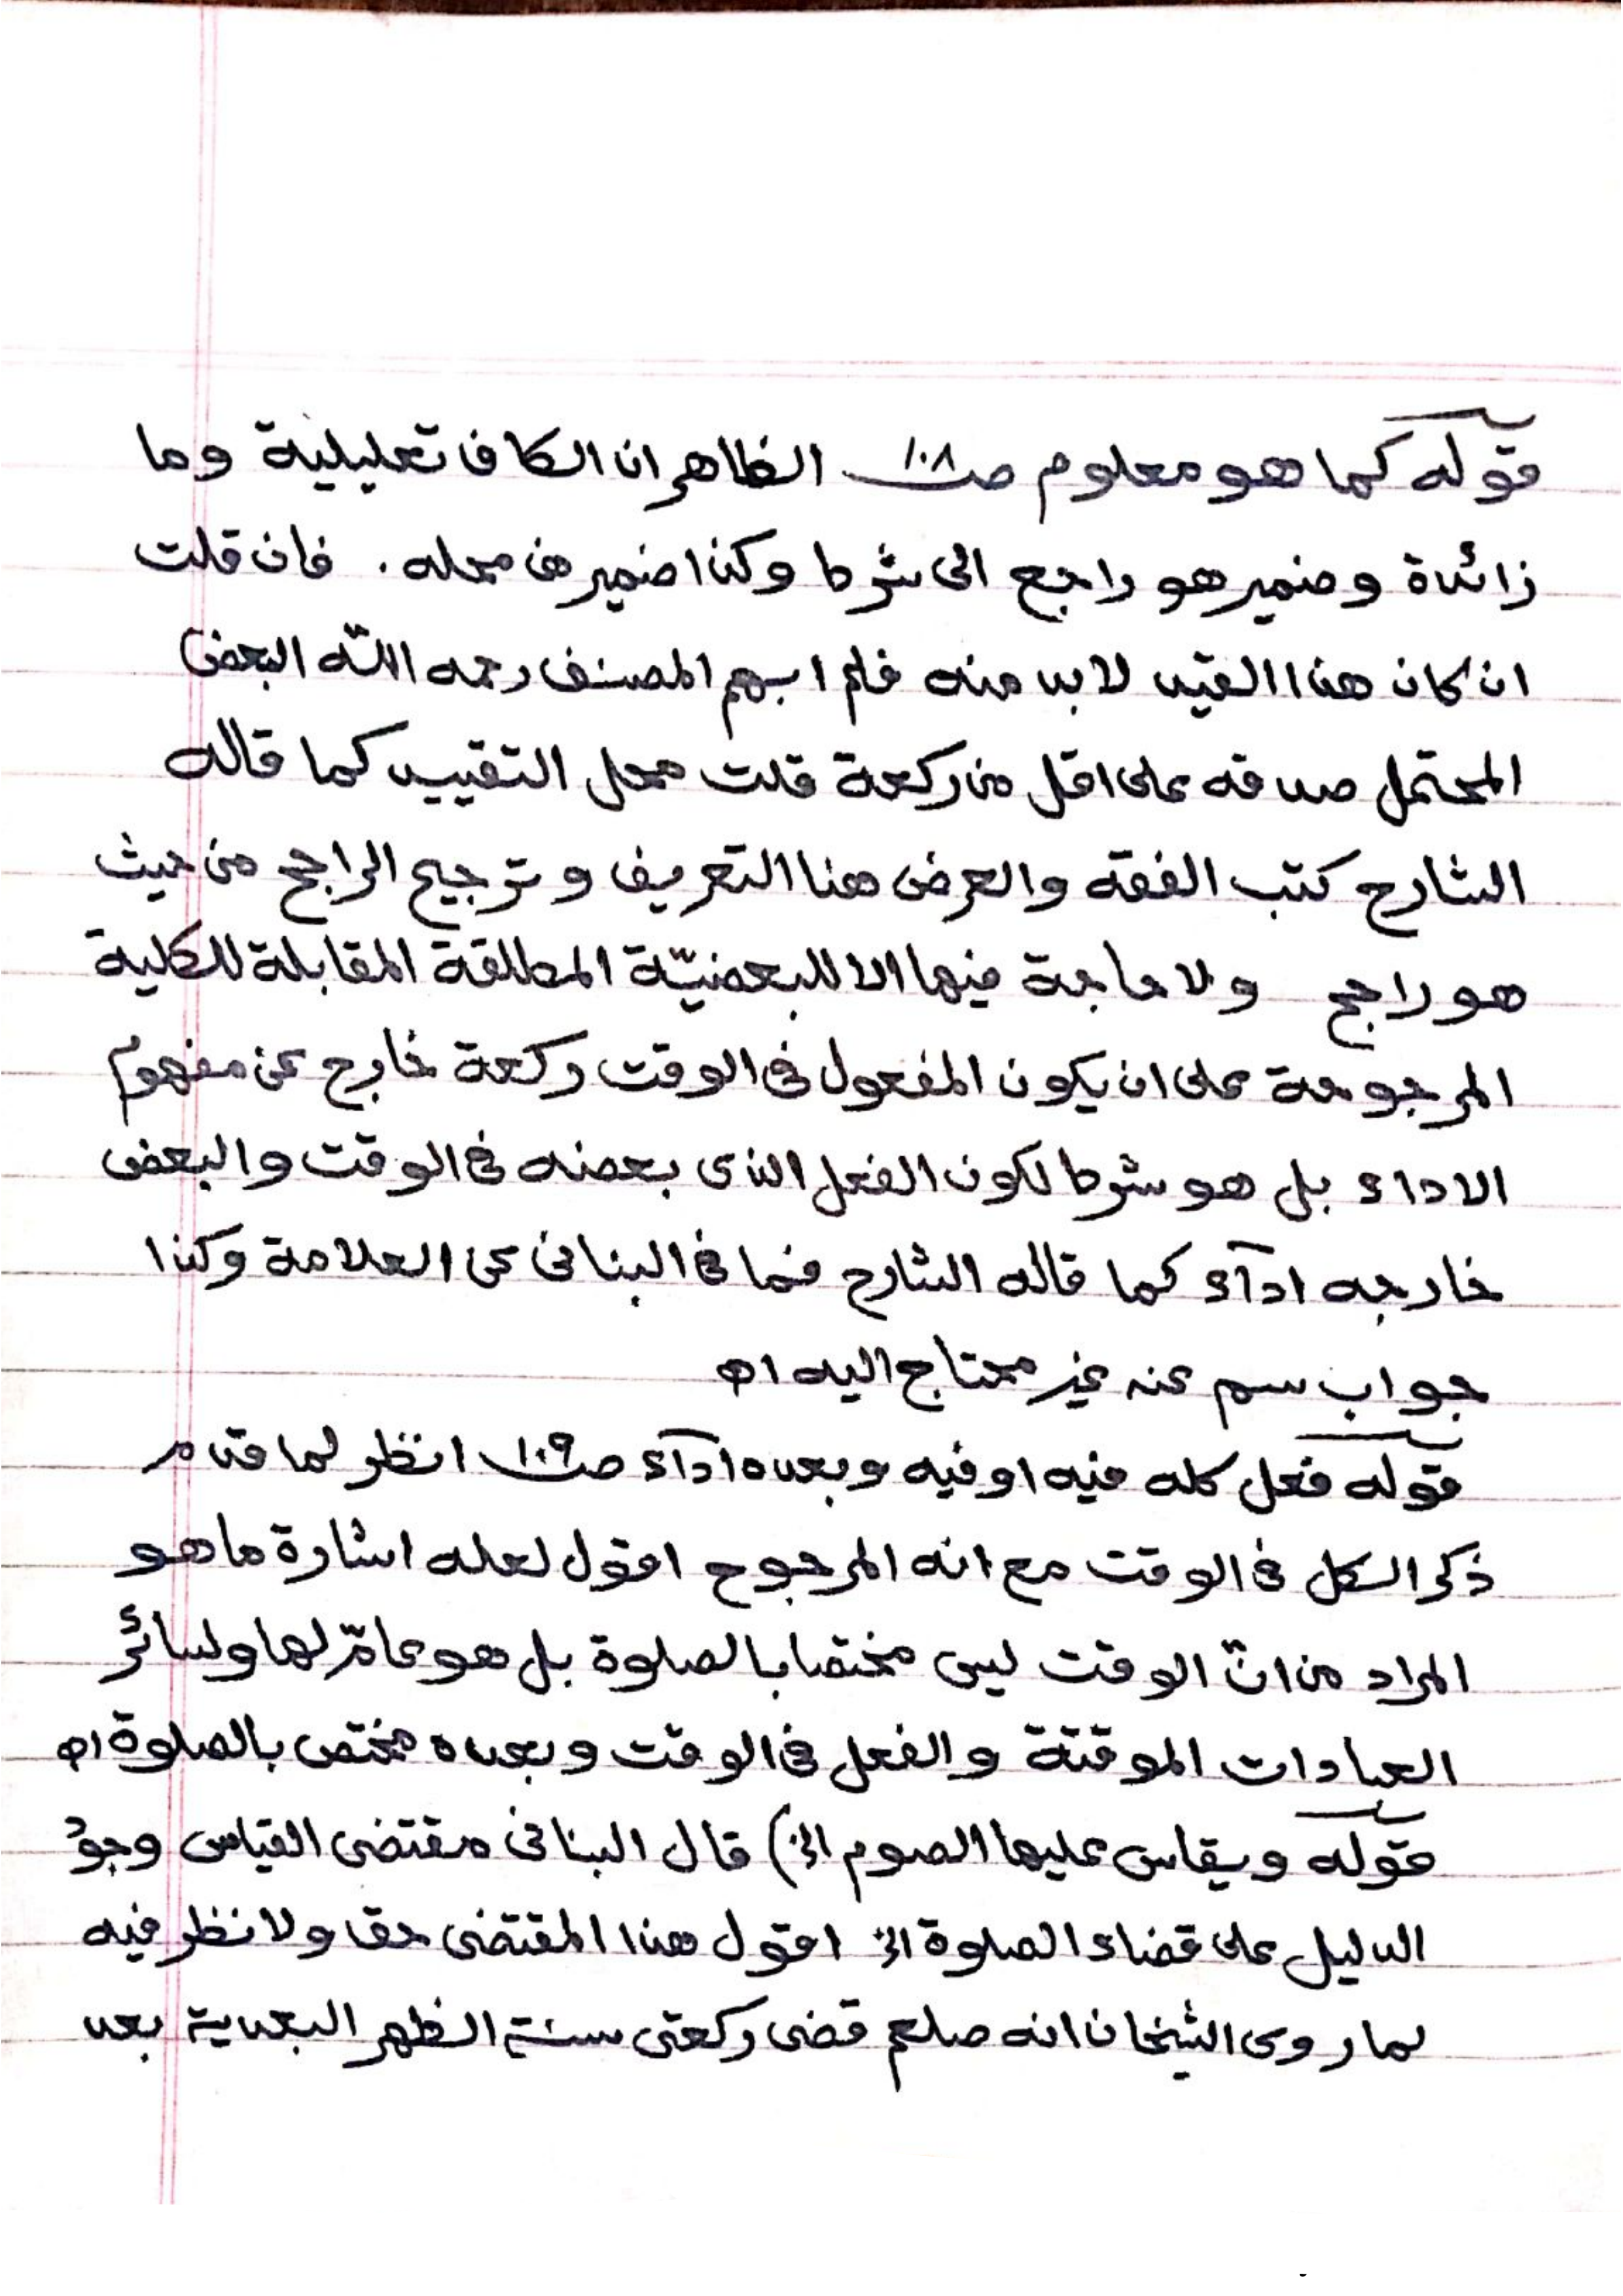 قوله كما هو معلوم صـ١٠٨ الظاهر ان الكاف تعليلية وما
زائدة وضمير هو راجع الى شرط وكذا ضمير من محله . فان قلت
ان كان هذا القيد لابد منه فلم ابهم المصنف رحمه الله البعض
المحتمل صدقه على اقل من ركعة قلت محل التقييد كما قاله
الشارح كتب الفقه والغرض هنا التعريف وترجيح الراجح من حيث
هو راجح ولا حاجة فيها الا للبعضيّة المطلقة المقابلة للكلية
المرجوحة على ان يكون المفعول فى الوقت ركعة خارج عن مفهوم
الاداء بل هو شرط لكون الفعل الذى بعضه فى الوقت والبعض
خارجه اداۤء كما قاله الشارح فما فى البنانى عن العلامة وكذا
جواب سم عنه غير محتاج اليه اه
قوله فعل كله فيه او فيه وبعده اداۤء صـ١٠٩ انظر لما قدم
ذكر الكل فى الوقت مع انه المرجوح اقول لعله اشارة ما هو
المراد من انّ الوقت ليس مختصا بالصلوة بل هو عامّ لها ولسائر
العبادات الموقتة والفعل فى الوقت وبعده مختص بالصلوة اه
قوله ويقاس عليها الصوم الخ) قال البنانى مقتضى القياس وجود
الدليل على قضاء الصلوة الخ اقول هذا المقتضى حق ولا نظر فيه
لما روى الشيخان انه صلعم قضى ركعتى سنة الظهر البعدية بعد